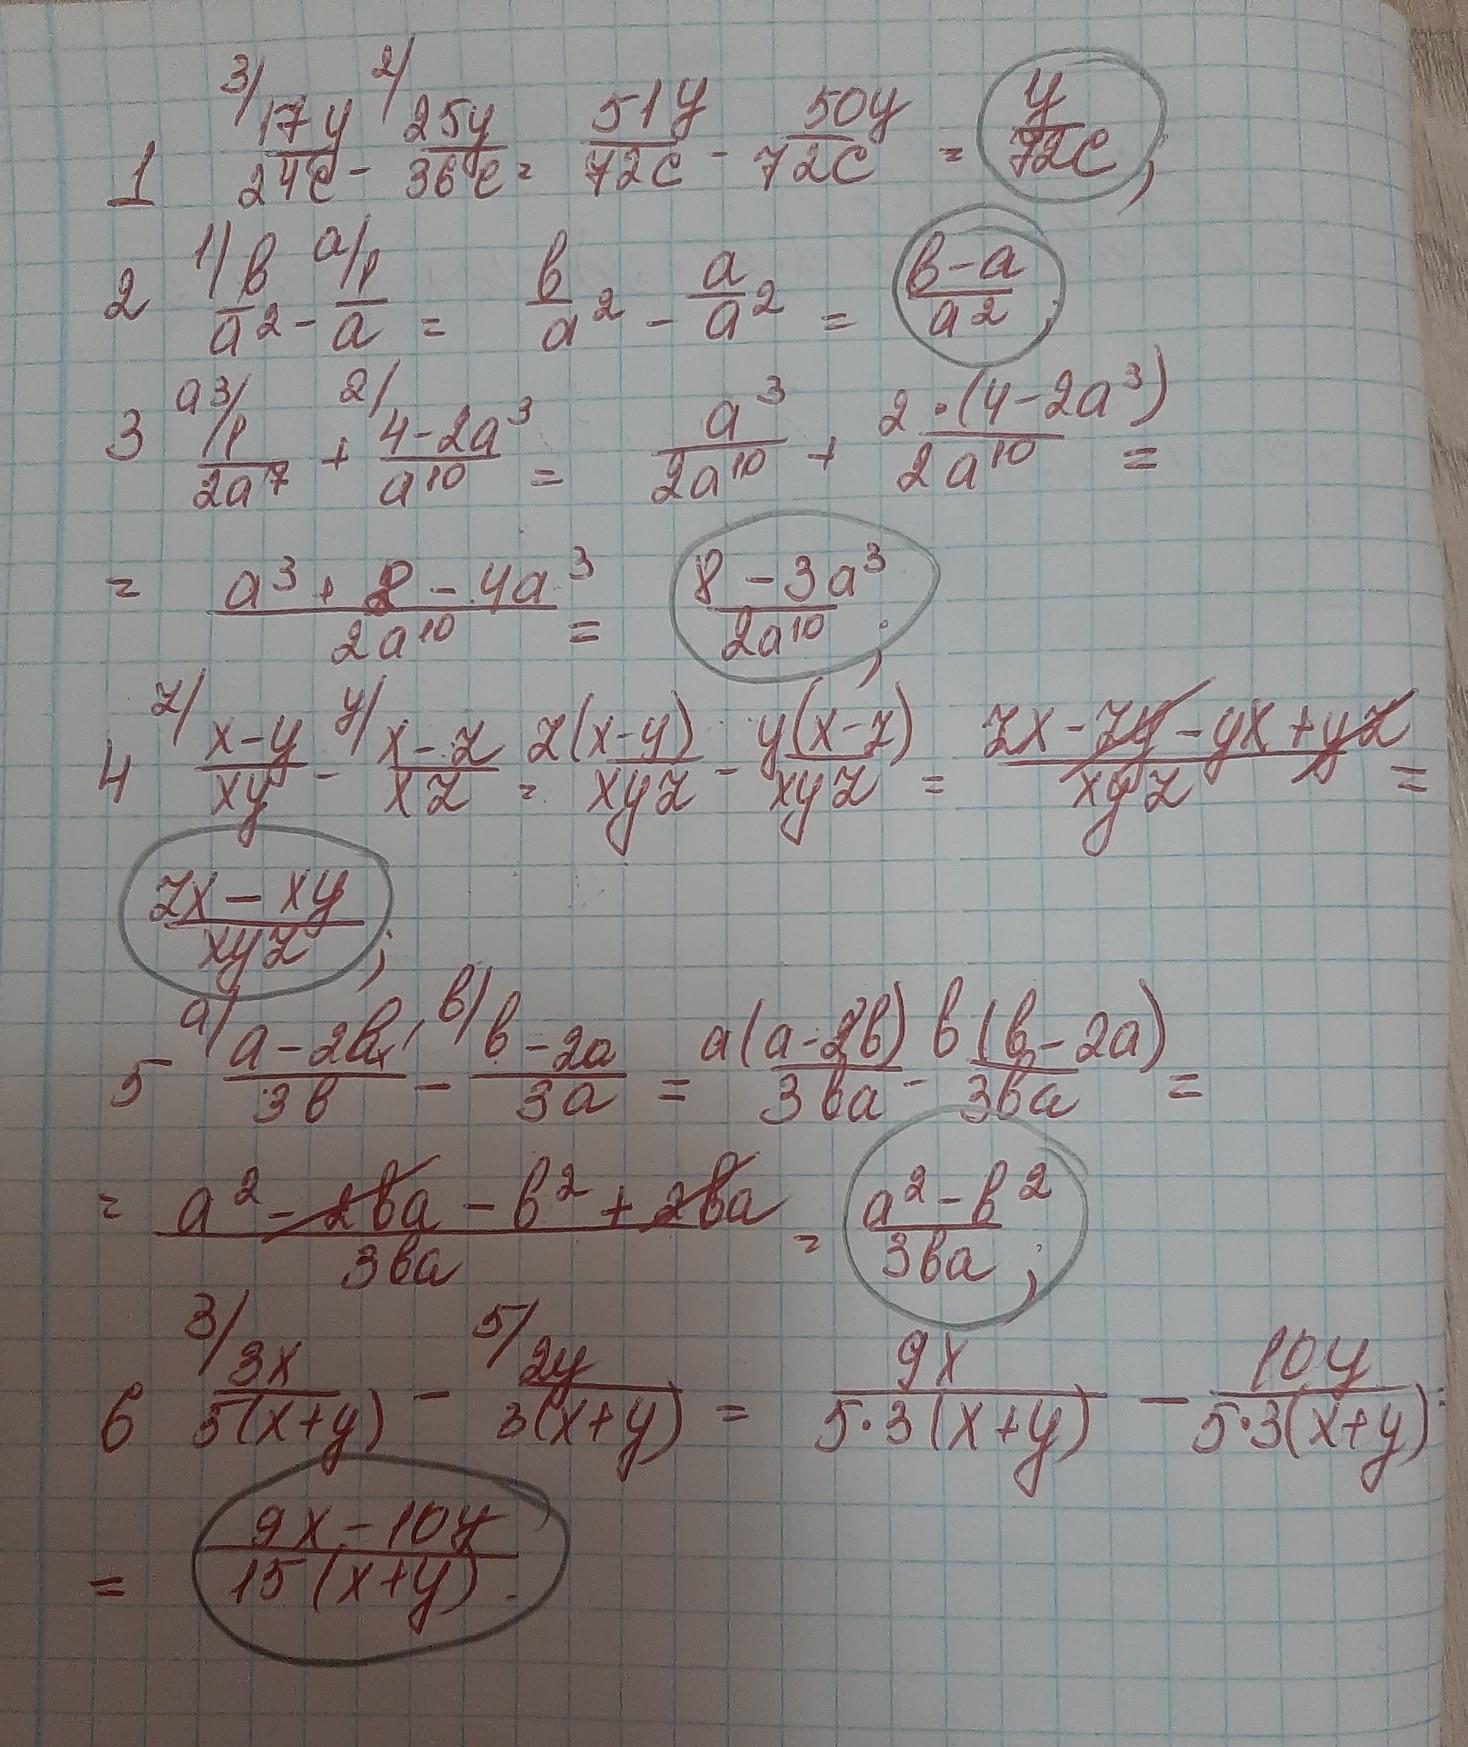 1 3/ 17y/24c - 2/ 25y/36c = 51y/72c - 50y/72c = y/72c;
2 1/ в/a² - a/ 1/a = в/a² - a/a² = в-a/a²;
3 a³/ 1/2a⁷ + 2/ 4-2a³/a¹⁰ = a³/2a¹⁰ + 2·(4-2a³)/2a¹⁰ =
= a³+8-4a³/2a¹⁰ = 8-3a³/2a¹⁰;
4 z/ x-y/xy - y/ x-z/xz = z(x-y)/xyz - y(x-z)/xyz = zx-zy-yx+yz/xyz =
zx-xy/xyz;
5 a/ a-2в/3в - в/ в-2a/3a = a(a-2в)/3вa - в(в-2a)/3вa =
= a²-2вa-в²+2вa/3вa = a²-в²/3вa;
6 3/ 3x/5(x+y) - 5/ 2y/3(x+y) = 9x/5·3(x+y) - 10y/5·3(x+y) =
= 9x-10y/15(x+y).